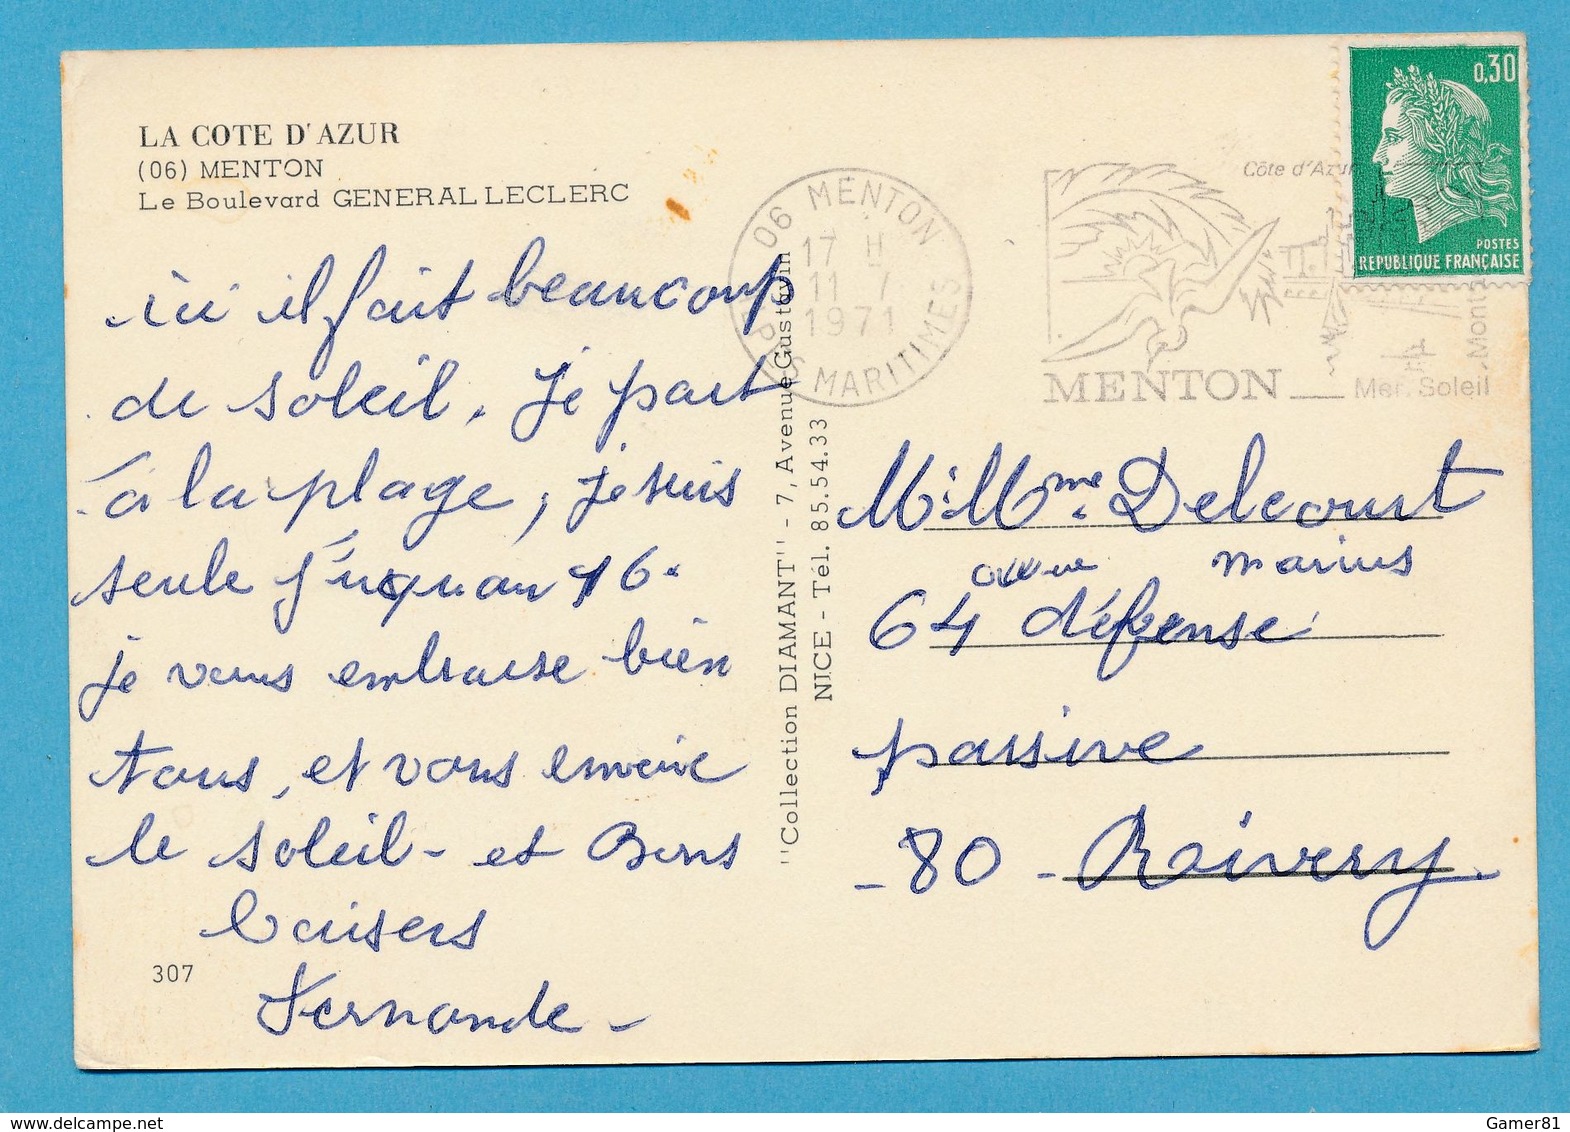 LA COTE D'AZUR
(06) MENTON
Le Boulevard GENERAL LECLERC
ici il fait beaucoup
de soleil. Je part
à la plage, je suis
seule j'usqu'au 16.
je vous embrasse bien
tous, et vous envoie
le soleil - et Bons
baisers
Fernande -
307
"Collection DIAMANT" - 7, Avenue Gustavin
NICE - Tél. 85.54.33
06 MENTON
17 H
11 7
1971
ALPES MARITIMES
Côte d'Azur
MENTON
Mer. Soleil
Mont
0,30
POSTES
REPUBLIQUE FRANÇAISE
M. Mme Delcourt
marius
64 défense
passive
- 80 - Rivery.
www.delcampe.net
Gamer81